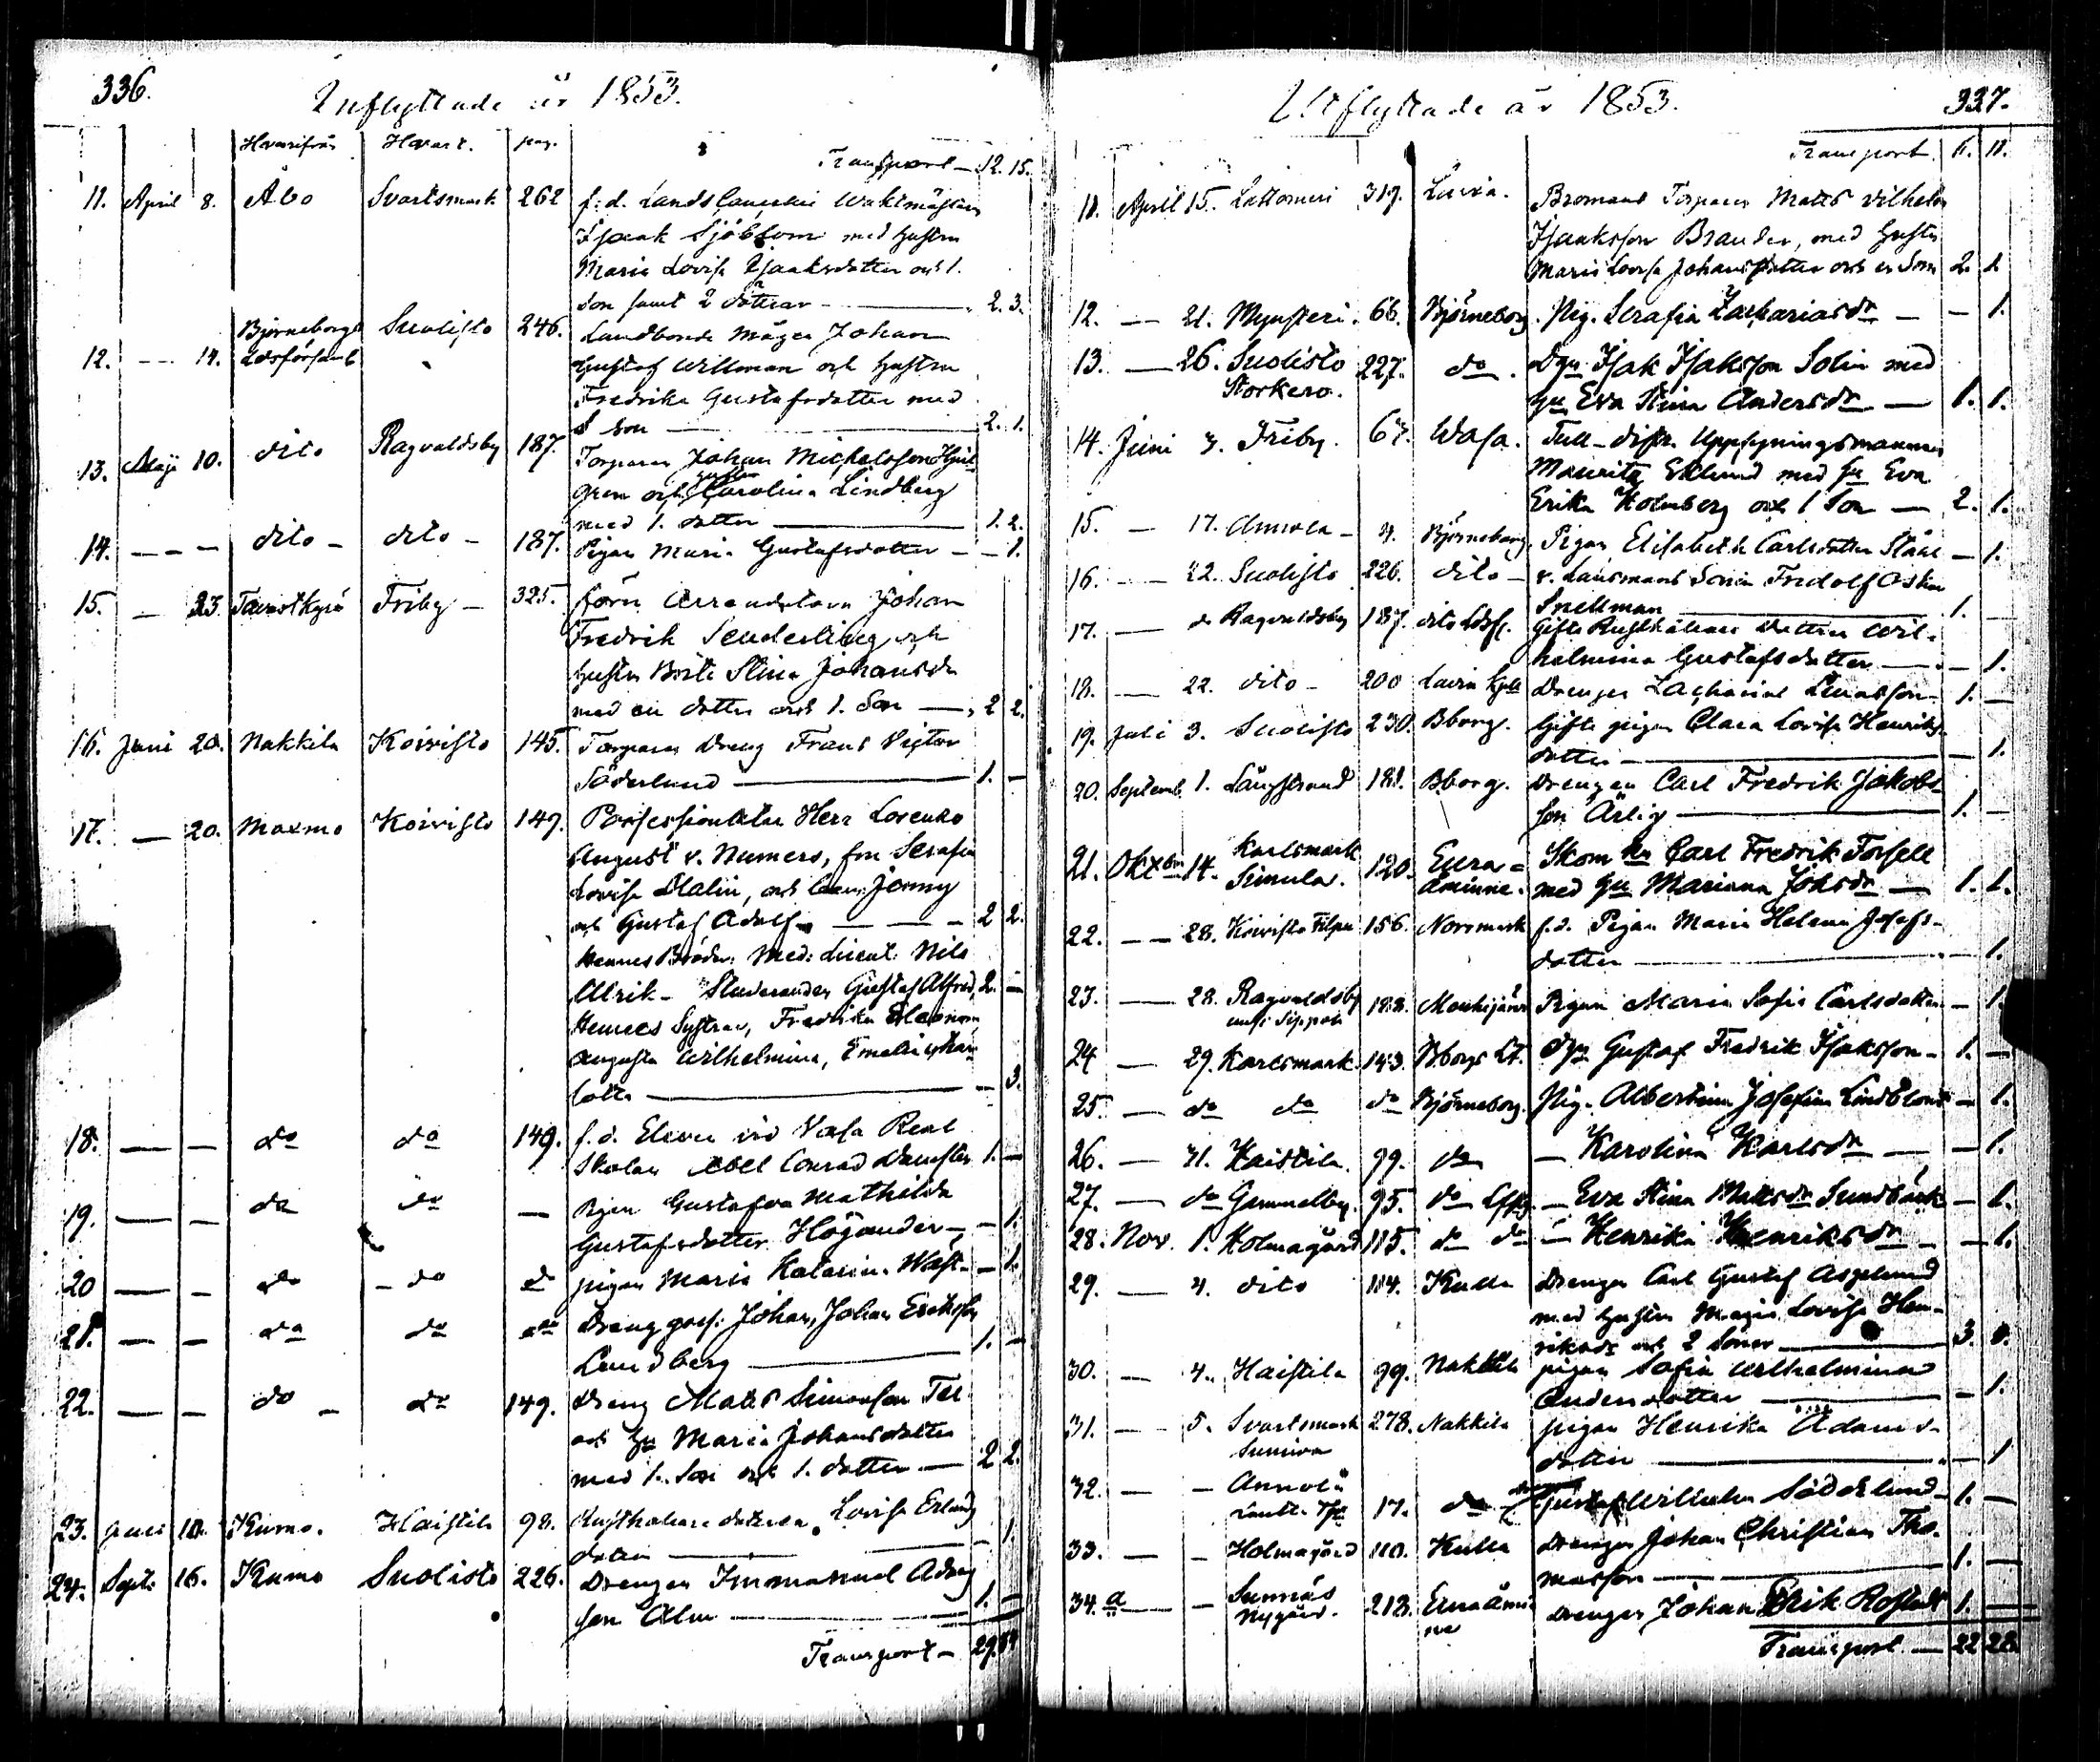 336.
Inflyttade år 1853.
Hvarifrån Hvart. pag.
Transport — 12. 15.
11. April 8. Åbo Svartsmark 262 f: d. Lands Waktmästaren
Isaak Sjöblom med hustru
Maria Lovisa Isaaksdotter och 1.
Son samt 2 döttrar — 2. 3.
12. — 14. Björneborgs Suolisto 246. Landbonde Mågen Johan
Gustaf Willman och hustru
Fredrika Gustafsdotter med
1 son — 2. 1.
13. Maji 10. dito Ragvaldsby 187. Torparen Johan Michelsson
gren och hustru Carolina Lindberg
med 1. dotter — 1. 2.
14. — — — dito — dito — 187. Pigan Maria Gustafsdotter — — 1.
15. — 23. Tavastkyrö Friby — 325. förre Arrendatorn Johan
Fredrik Senderling och
hustru Brita Stina Johansdr
med en dotter och 1. Son — 2 2.
16. Juni 20. Nakkila Koivisto 145. Torpare Dreng Frans Victor
Söderlund — 1. —
17. — 20. Maxmo Koivisto 149. Possessionaten Herr Lorenzo
August v. Numers, fru Serafia
Lovisa Malin, och barn: Jenny
och Gustaf Adolf — — — 2 2.
Hennes Bröder: Med: Licent: Nils
Ulrik — Studeranden Gustaf Alfred, 2. —
Hennes Systrar, Fredrika Eleonora
Augusta Wilhelmina, Emelie Char
lotta — — 3.
18. — — do do 149. f. d. Eleven vid Vasa Real
Skolan Abel Conrad 1. —
19. — — do do — Pigan Gustafva Mathilda
Gustafsdotter Högander — — 1.
20 — — do — do do pigan Maria Katarina — 1.
21. — — do do do Dreng Johan, Johan Eriksson
Lundberg — 1. —
22. — — do — do 149. Dreng Matts Simonsson
och hu Maria Johansdotter
med 1. Son och 1. dotter — 2 2.
23. Juli 10. Kumo. Haistila 98. Rusthållare dottren Lovisa Erlands
dotter — — 1.
24. Septr 16. Kumo Suolisto 226. Drengen Immanuel Adams
son Alm — 1. —
Transport — 29.
Utflyttade år 1853.
337.
Transport. 6. 11.
11. April 15. Lattomeri 319. Luvia. Bromans Torparen Matts Vilhelm
Isaaksson Brander, med hustru
Maria Lovisa Johansdotter och en Son 2. 1.
12. — 21. Mynsteri. 66. Björneborg. Pig. Serafia Zachariasdr — — 1.
13. — 26. Suolisto 227. do. Dgn Isak Isaksson Solin med
Storkero.
hu Eva Stina Andersdr — 1. 1.
14. Juni 3. Friby. 67. Wasa. Tull-distr. Uppsyningsmannen
Mauritz Eklund med hu Eva
Erika Holmberg och 1 Son — 2. 1.
15. — 17. Annola — 4. Björneborg. Pigan Elisabeth Carlsdotter Stååhl — 1.
16. — 22. Suolisto 226. dito — v. Länsmans Sonen Fridolf Oskar
Snellman — 1. —
17. — do Ragvaldsby 187. dito Ldsf. Gifta Rusthållare Dottren Wil-
helmina Gustafsdotter — — 1.
18. — 22. dito — 200 Luvia Drengen Zacharias — 1. —
19. Juli 3. Suolisto 230. Bborg. Gifta pigan Clara Lovisa Henriks-
dotter — — 1.
20. Septemb. 1. Långstrand 181. Bborg. Drengen Carl Fredrik Jakobs-
son Ärlig — 1. —
21. Oktbr 14. Karlsmark 120. Eura- Skom. Carl Fredrik Forsell
Simula. åminne. med hu Mariana — 1. 1.
22. — — 28. Koivisto Filpu 156. Norrmark f. d. Pigan Maria Helena Josefs-
dotter — — 1.
23. — 28. Ragvaldsby 188. Mouhijärvi Pigan Maria Sofia Carlsdotter — 1.
24 — 29. Karlsmark. 143. Bborgs Lf. Dgn Gustaf Fredrik Isaksson — 1. —
25. — do do do Björneborg. Pig. Albertina Josefina Lindblom — 1.
26. — 31. Haistila. 99. do — Karolina Karlsdr — — 1.
27. — do Gammelby. 95. do — Eva Stina Mattsdr Sundbäck — 1.
28. Nov. 1. Holmagård 115. do do — Henrika Henriksdr — — 1.
29. — 4. dito 114. Kulla Drengen Carl Gustaf Asplund
med hustru Maria Lovisa Hen-
riksdr och 2 Söner — 3.
30. — 4. Haistila 99. Nakkila pigan Sofia Wilhelmina
Andersdotter — — 1.
31. — 5. Svartsmark 278. Nakkila pigan Henrika Adams-
dotter — — 1
32. — — Annola 17. do Gustaf Wilhelm Söderlund — 1. —
33. — — Holmagård 110. Kulla Drengen Johan Christian Tho-
masson — 1. —
34. a — — Sunnäs 213. Euraåmin Drengen Johan Erik 1. —
Nygård. ne
Transport — 22 28.